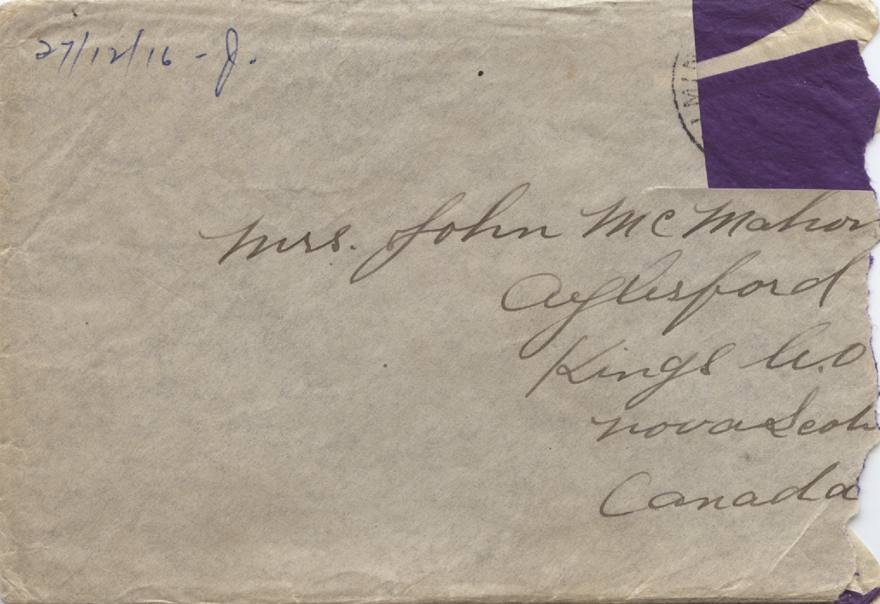 27/12/16 - J.
Mrs. John McMahon
Aylesford
Kings Co
Nova Scoti
Canada